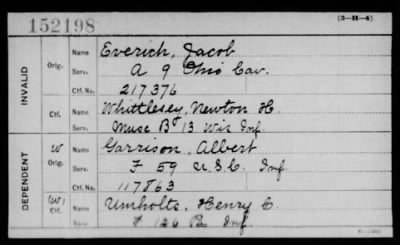 152198 (3-H-4)
INVALID
Orig. Name Everich, Jacob
Serv. A 9 Ohio Cav.
Ctf. No. 217376
Ctf. Name Whittlesey, Newton H.
Serv. Musc B 13 Wis Inf.
DEPENDENT
W Orig. Name Garrison, Albert
Serv. F 59 U.S.C. Inf.
Ctf. No. 117863
(W) Ctf. Name Umholtz, Henry C.
Serv. 136 Pa Inf.